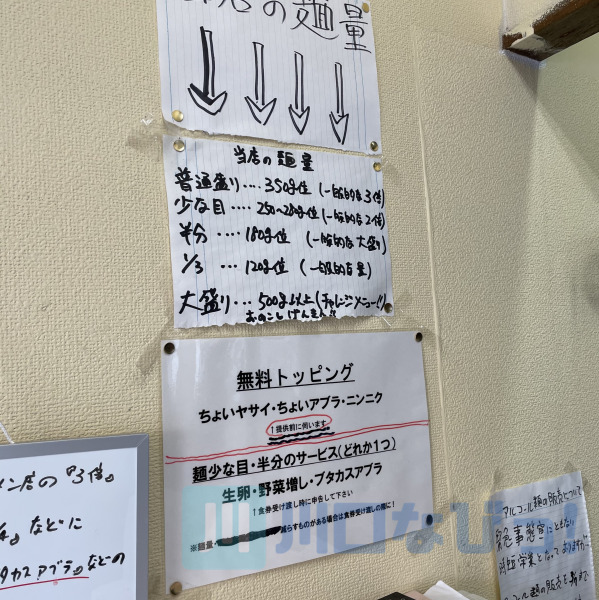 の麺量
当店の麺量
普通盛り‥‥350g位(一般的な3倍)
少な目‥‥250~280g位(一般的な2倍)
半分‥‥180g位(一般的な大盛り)
1/3‥‥120g位(一般的な量)
大盛り‥‥500g以上(チャレンジメニュー!!)
おのこしげんきん!!
無料トッピング
ちょいヤサイ・ちょいアブラ・ニンニク
↑提供前に伺います
麺少な目・半分のサービス(どれか1つ)
生卵・野菜増し・ブタカスアブラ
↑食券受け渡し時に申告して下さい
※麺量・減らすものがある場合は食券受け渡しの際に!
川口なび!
メン店の『3倍。
などに
タカスアブラ』などの
アルコール類の販売について
緊急事態宣言にともない
時短営業となっておりますので
アルコール類の販売を